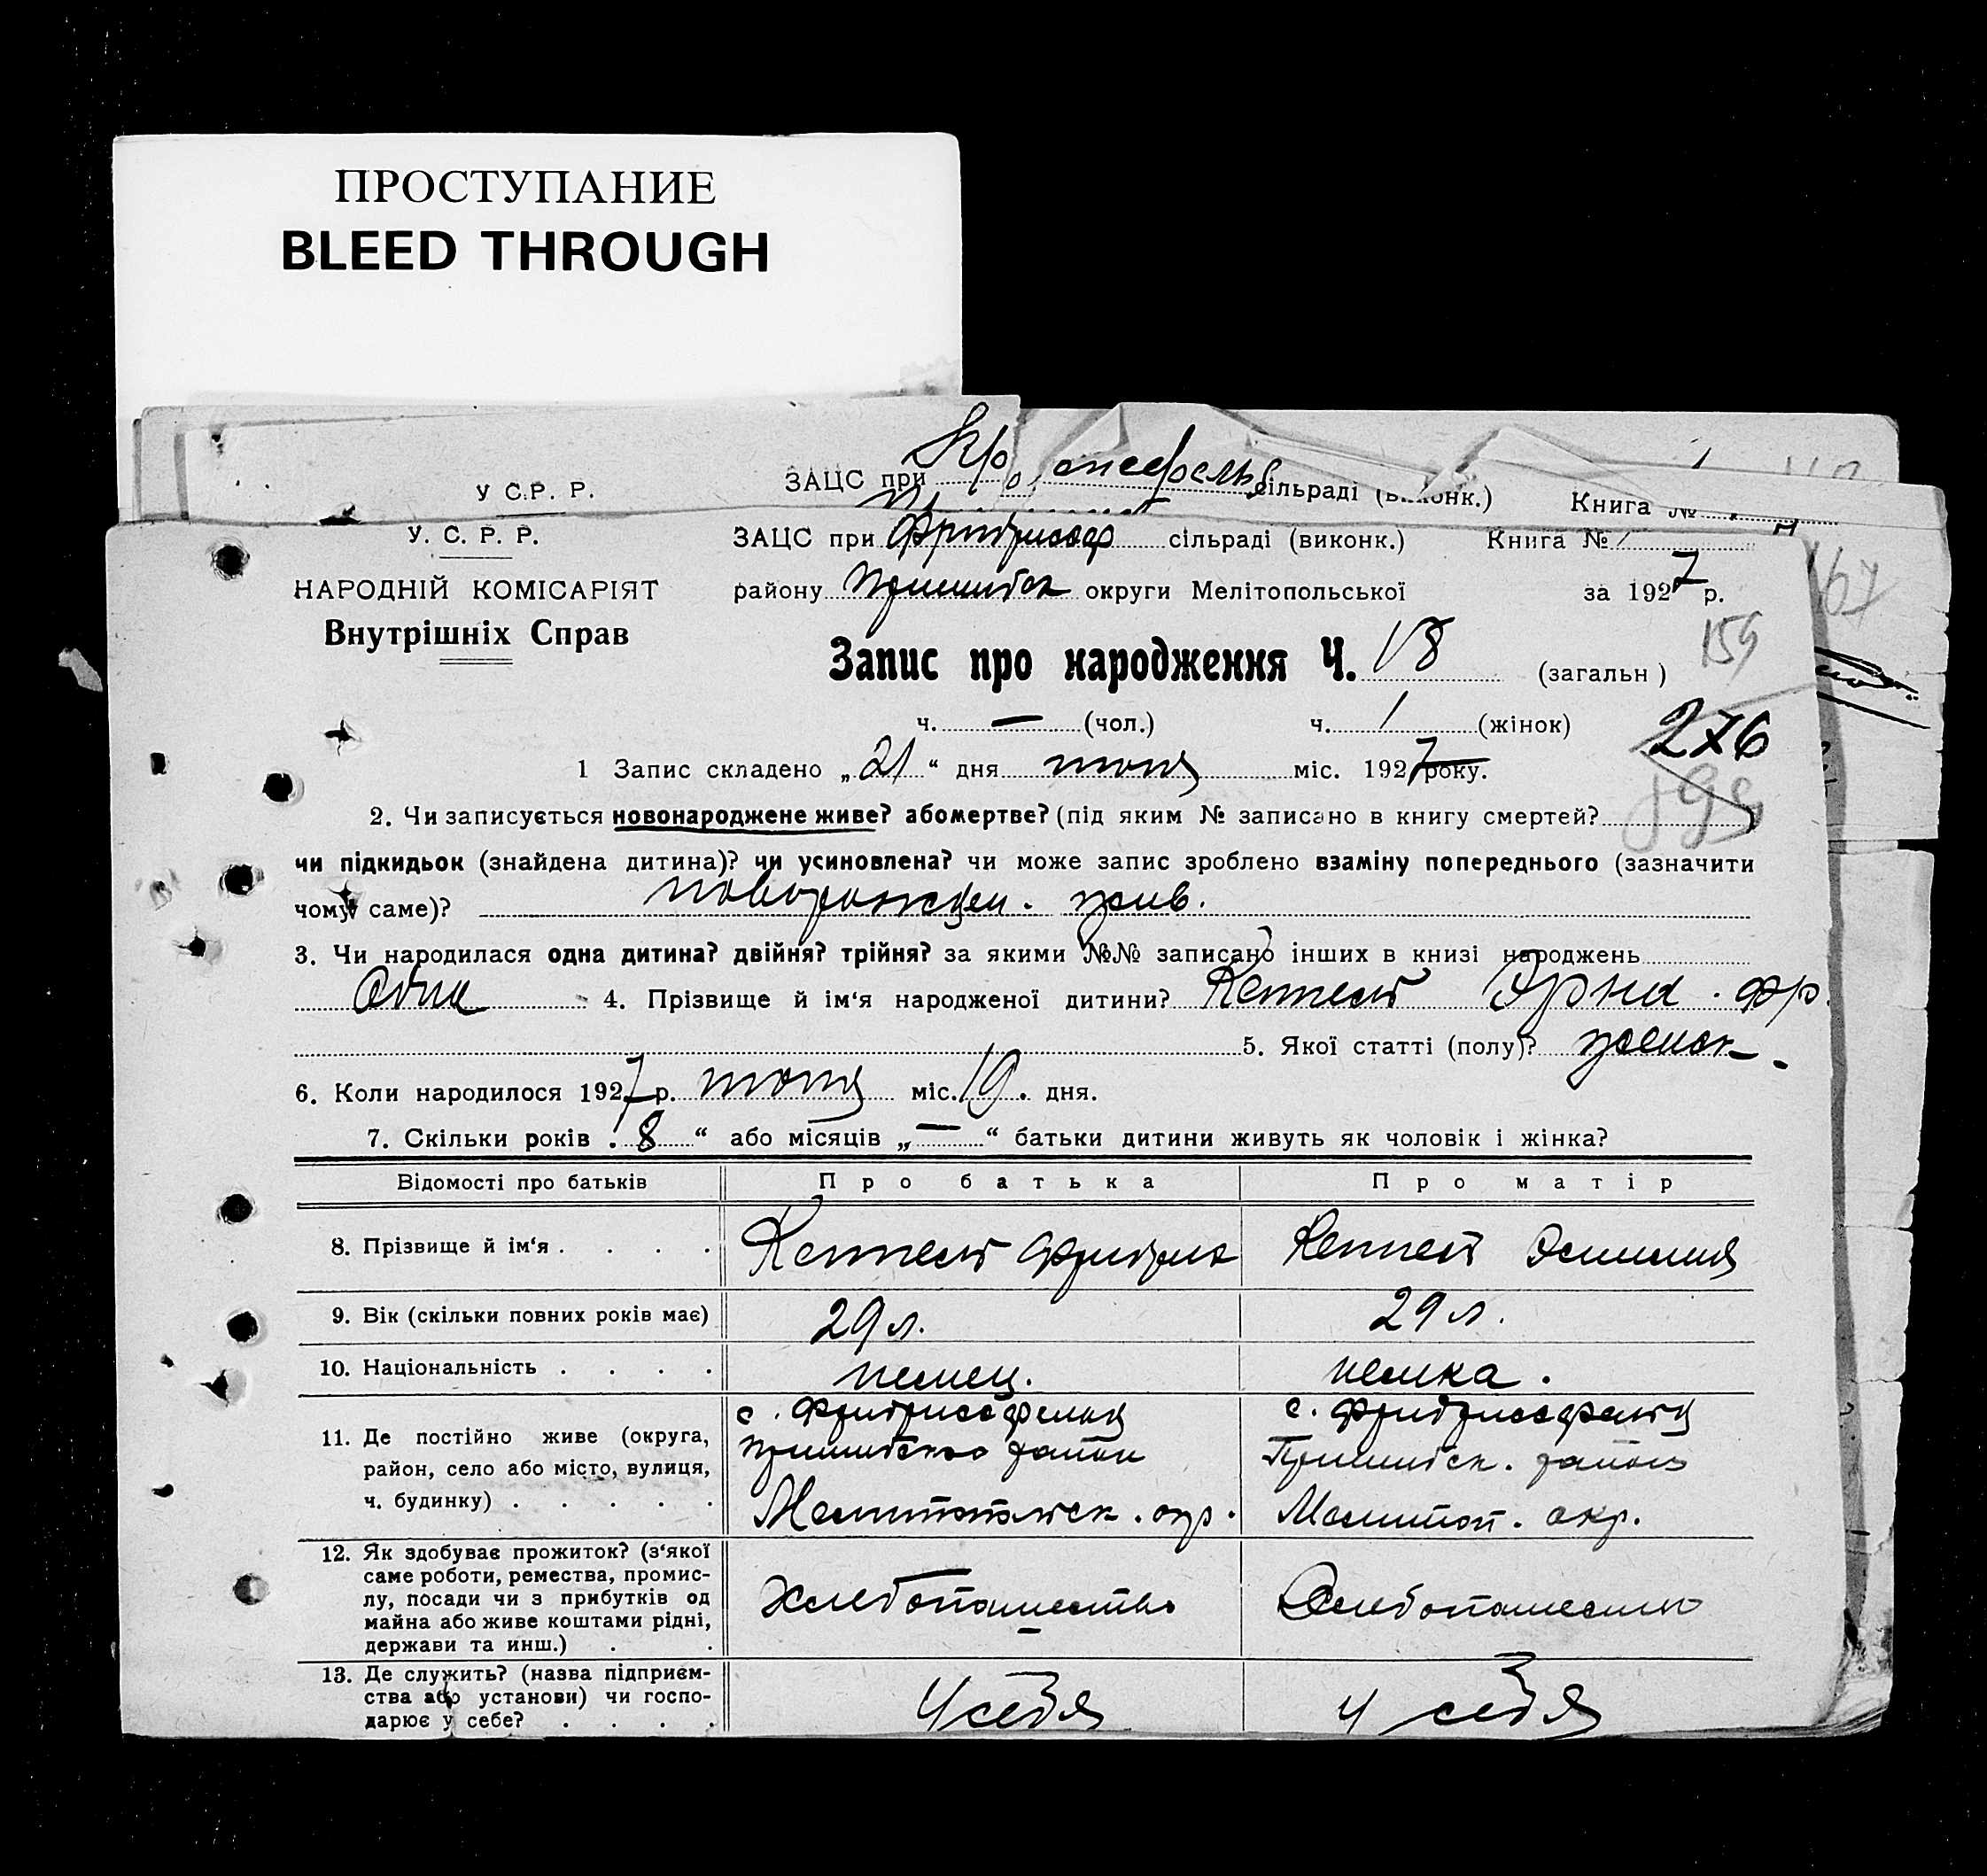 ПРОСТУПАНИЕ
BLEED THROUGH
У С.Р. Р. ЗАЦС при сільраді (виконк.) Книга №
У. С. Р. Р. ЗАЦС при Фридрихсф сільраді (виконк.) Книга № 1
НАРОДНІЙ КОМІСАРІЯТ району Пришибск округи Мелітопольської за 1927 р.
Внутрішніх Справ
Запис про народження Ч. 18 (загальн ) 159
ч. — (чол.) ч. 1 (жінок) 276
1 Запис складено „21“ дня июня міс. 1927 року.
2. Чи записується новонароджене живе? або мертве? (під яким № записано в книгу смертей?
чи підкидьок (знайдена дитина)? чи усиновлена? чи може запис зроблено взаміну попереднього (зазначити
чому саме)? новорожден. жив.
3. Чи народилася одна дитина? двійня? трійня? за якими №№ записано інших в книзі народжень
Одна 4. Прізвище й ім‘я народженої дитини? Эрна . Фр
5. Якої статті (полу)? женск
6. Коли народилося 1927 р. июня міс. 19. дня.
7. Скільки років 8 “ або місяців „—“ батьки дитини живуть як чоловік і жінка?
Відомості про батьків Про батька Про матір
8. Прізвище й ім‘я . . . . Фридрих
9. Вік (скільки повних років має) 29 л. 29 л.
10. Національність . . . . немец. немка .
11. Де постійно живе (округа, с. Фридрихсфельд с. Фридрихсфельд
район, село або місто, вулиця, Пришибского район Пришибск. район
ч. будинку) . . . . . Мелитопольск. окр. Мелитоп. окр.
12. Як здобуває прожиток? (з‘якої
саме роботи, ремества, промис-
лу, посади чи з прибутків од Хлебопашество Хлебопашество
майна або живе коштами рідні,
держави та инш.) . .
13. Де служить? (назва підприєм-
ства або установи) чи госпо- У себя У себя
дарює у себе? . . . .